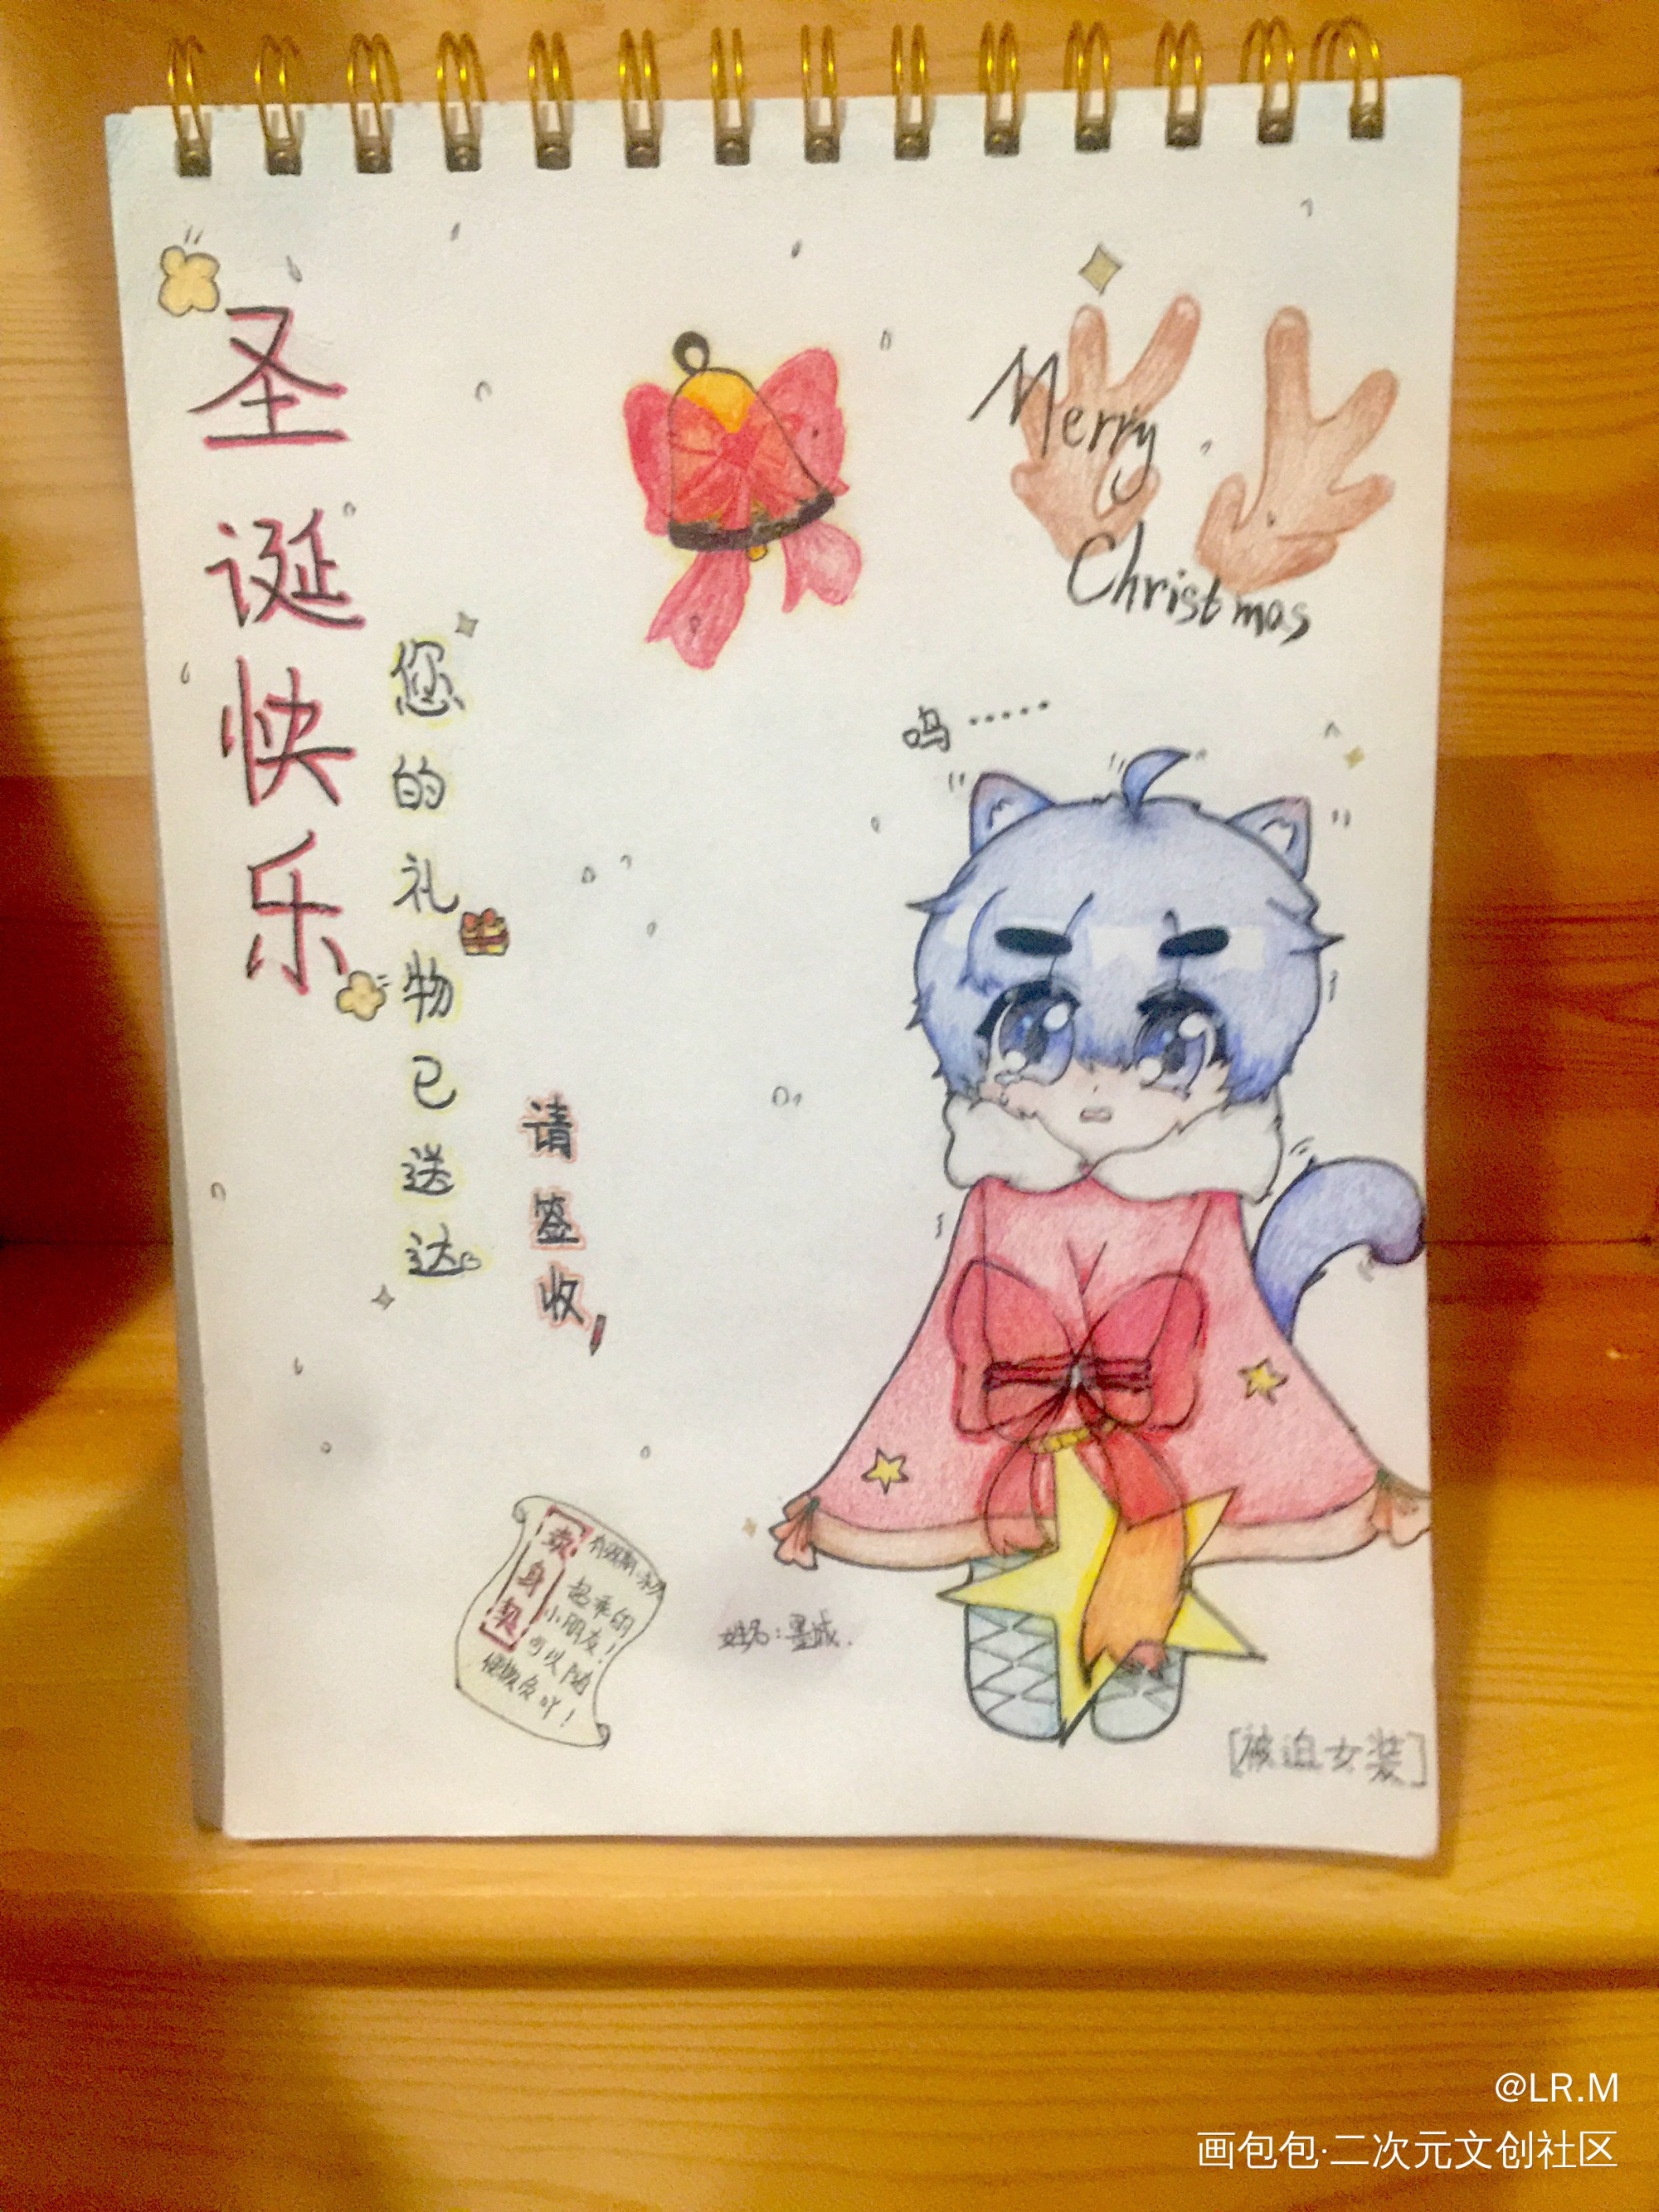 圣诞快乐
您的礼物已送达
请签收
Merry
Christmas
呜……
卖身契
超乖的
小朋友!
可以随
便撸负吖!
姓名:墨城.
[被迫女装]
@LR.M
画包包·二次元文创社区